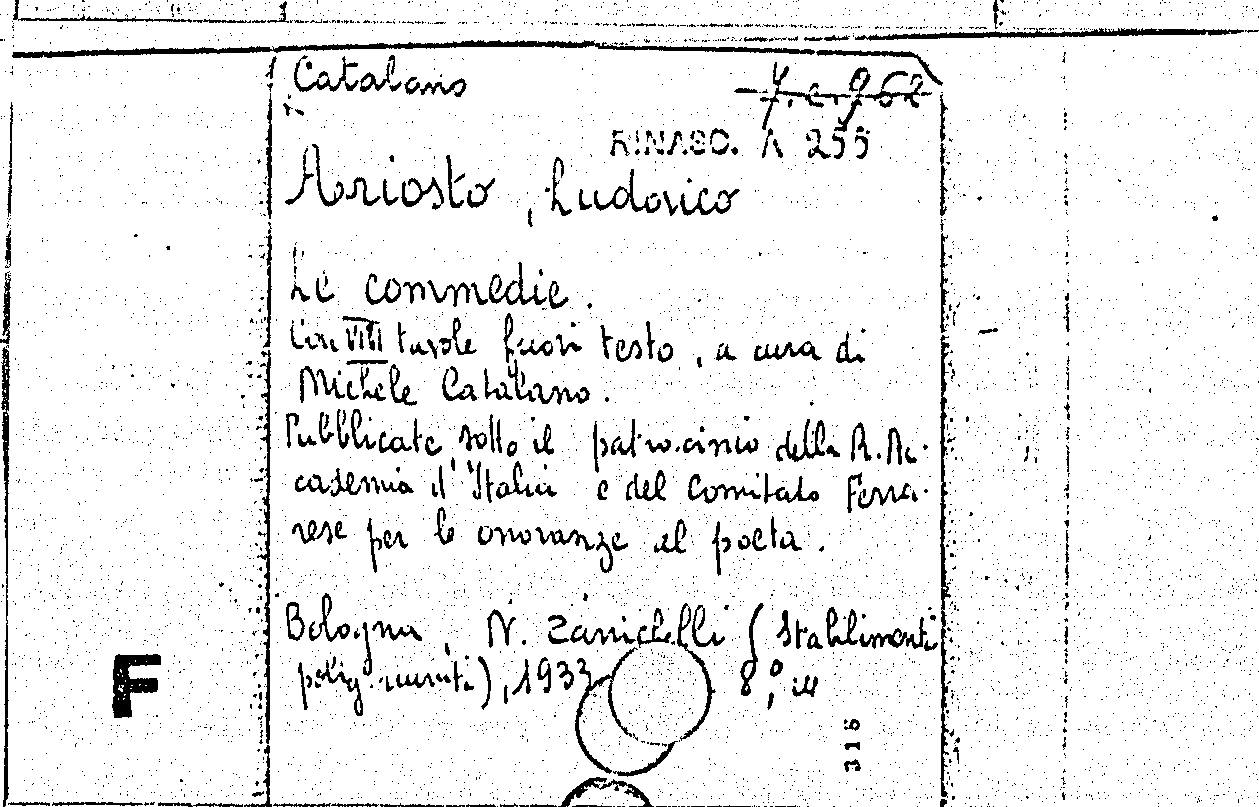 Catalano
7.e.962
RINASC. A 255
Ariosto, Ludovico
Le commedie.
Con VIII tavole fuori testo, a cura di
Michele Catalano.
Pubblicate sotto il patrocinio della R. Ac-
cademia d'Italia e del Comitato Ferra-
rese per le onoranze al poeta.
Bologna, N. Zanichelli (Stabilimenti
polig. riuniti), 1933 8°, ill
F
316